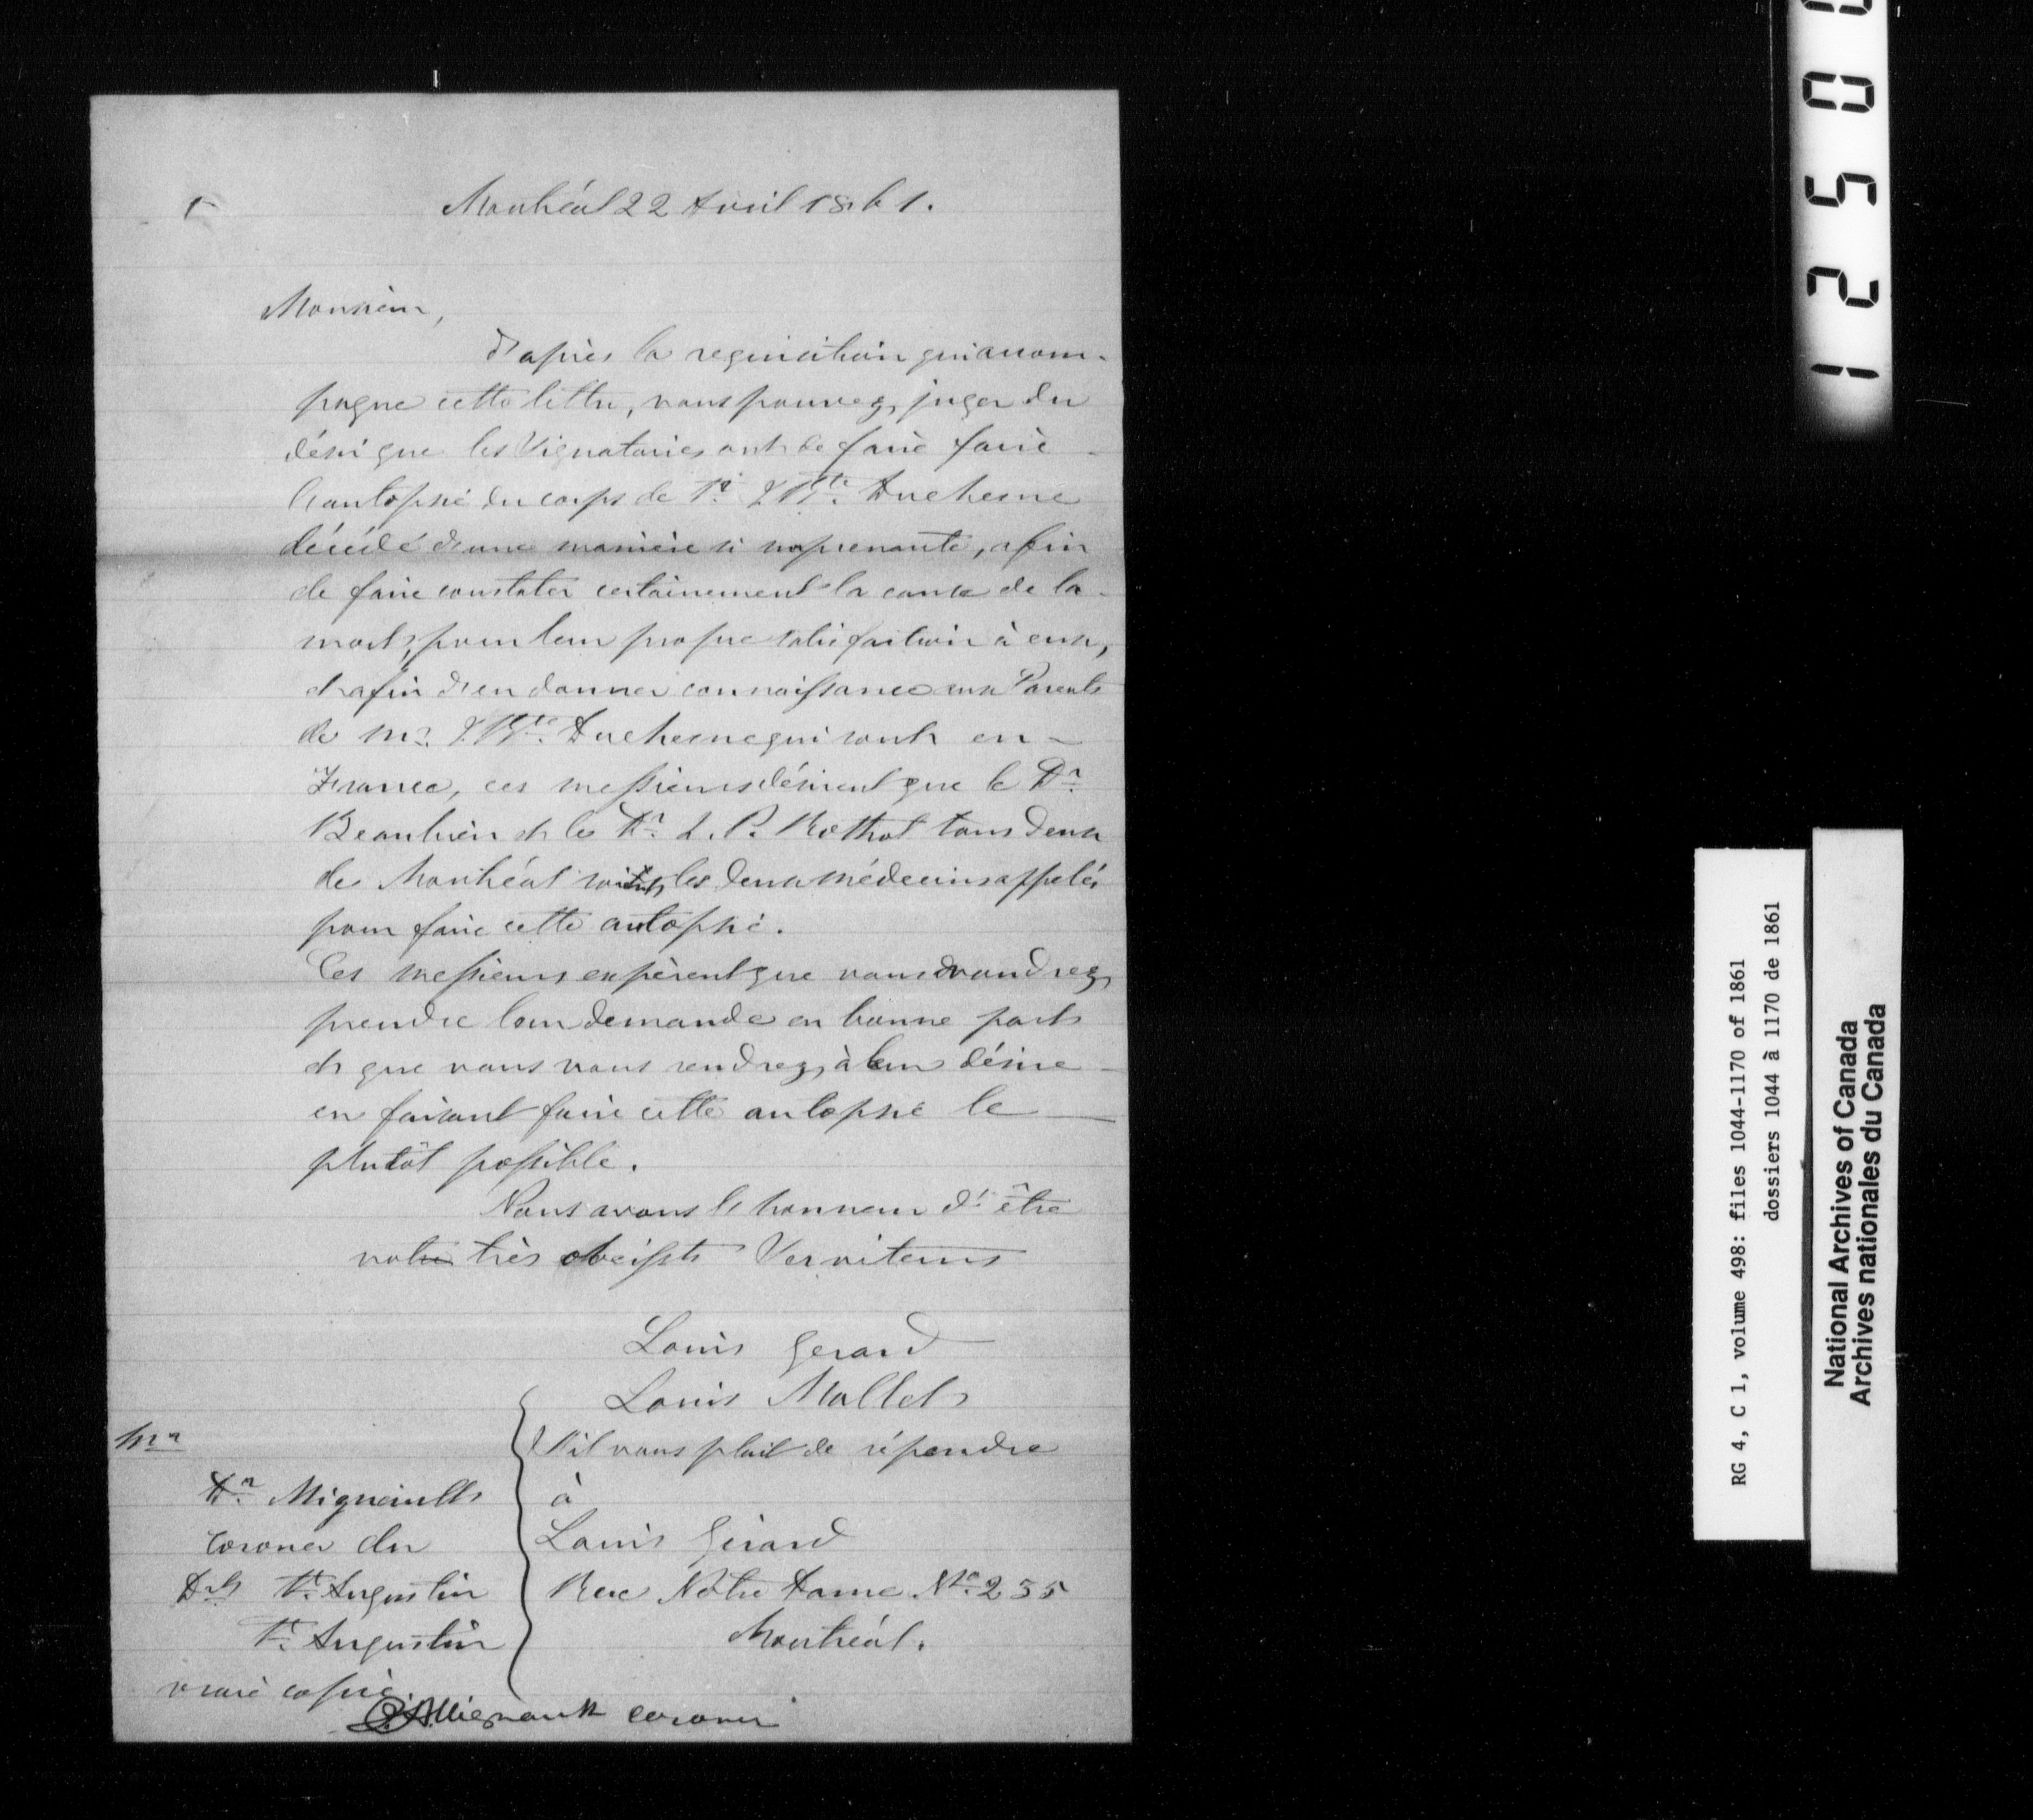 Montréal 22 Avril 1861.
Monsieur,
d'après la requisition qui accom-
pagne cette lettre, vous pouvez juger du
désir que les Signataires ont de faire faire
l'autopsie du corps de Sr. J. Bte. Duchesne
décédé d'une manière si surprenante, afin
de faire constater certainement la cause de la
mort, pour leur propre satisfaction à eux,
et afin d'en donner connaissance aux Parents
de Mr. J. Bte. Duchesne qui sont en
France, ces messieurs désirent que le Dr.
Beaubien et le Dr. L. P. Rottot tous deux
de Montréal soient les deux médecins appelés
pour faire cette autopsie.
Ces messieurs espèrent que vous voudrez
prendre leur demande en bonne part
et que vous vous rendrez à leur désire
en faisant faire cette autopsie le
plutôt possible.
Nous avons l'honneur d'être
votre très obéissts Serviteurs
Louis Gerard
Louis Mallet
Mr
Dr. Migneault
Coroner du
Drt St. Augustin
St. Augustin
S'il vous plait de répondre
à
Louis Gérard
Rue Notre Dame No. 235
Montréal.
vraie copie.
Mignault coroner
1250
RG 4, C 1, volume 498: files 1044-1170 of 1861
dossiers 1044 à 1170 de 1861
National Archives of Canada
Archives nationales du Canada